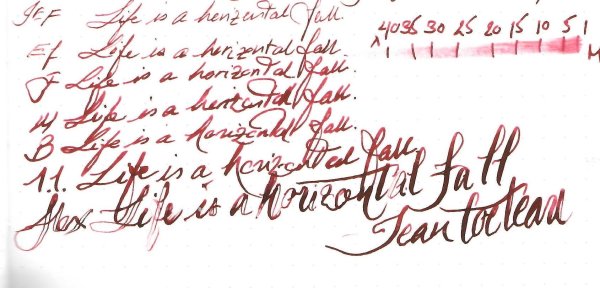 JEF Life is a horizontal fall.
40 35 30 25 20 15 10 5 1
EF Life is a horizontal fall.
F Life is a horizontal fall.
M Life is a horizontal fall.
B Life is a horizontal fall.
1.1. Life is a horizontal fall.
flex Life is a horizontal fall
Jean Cocteau